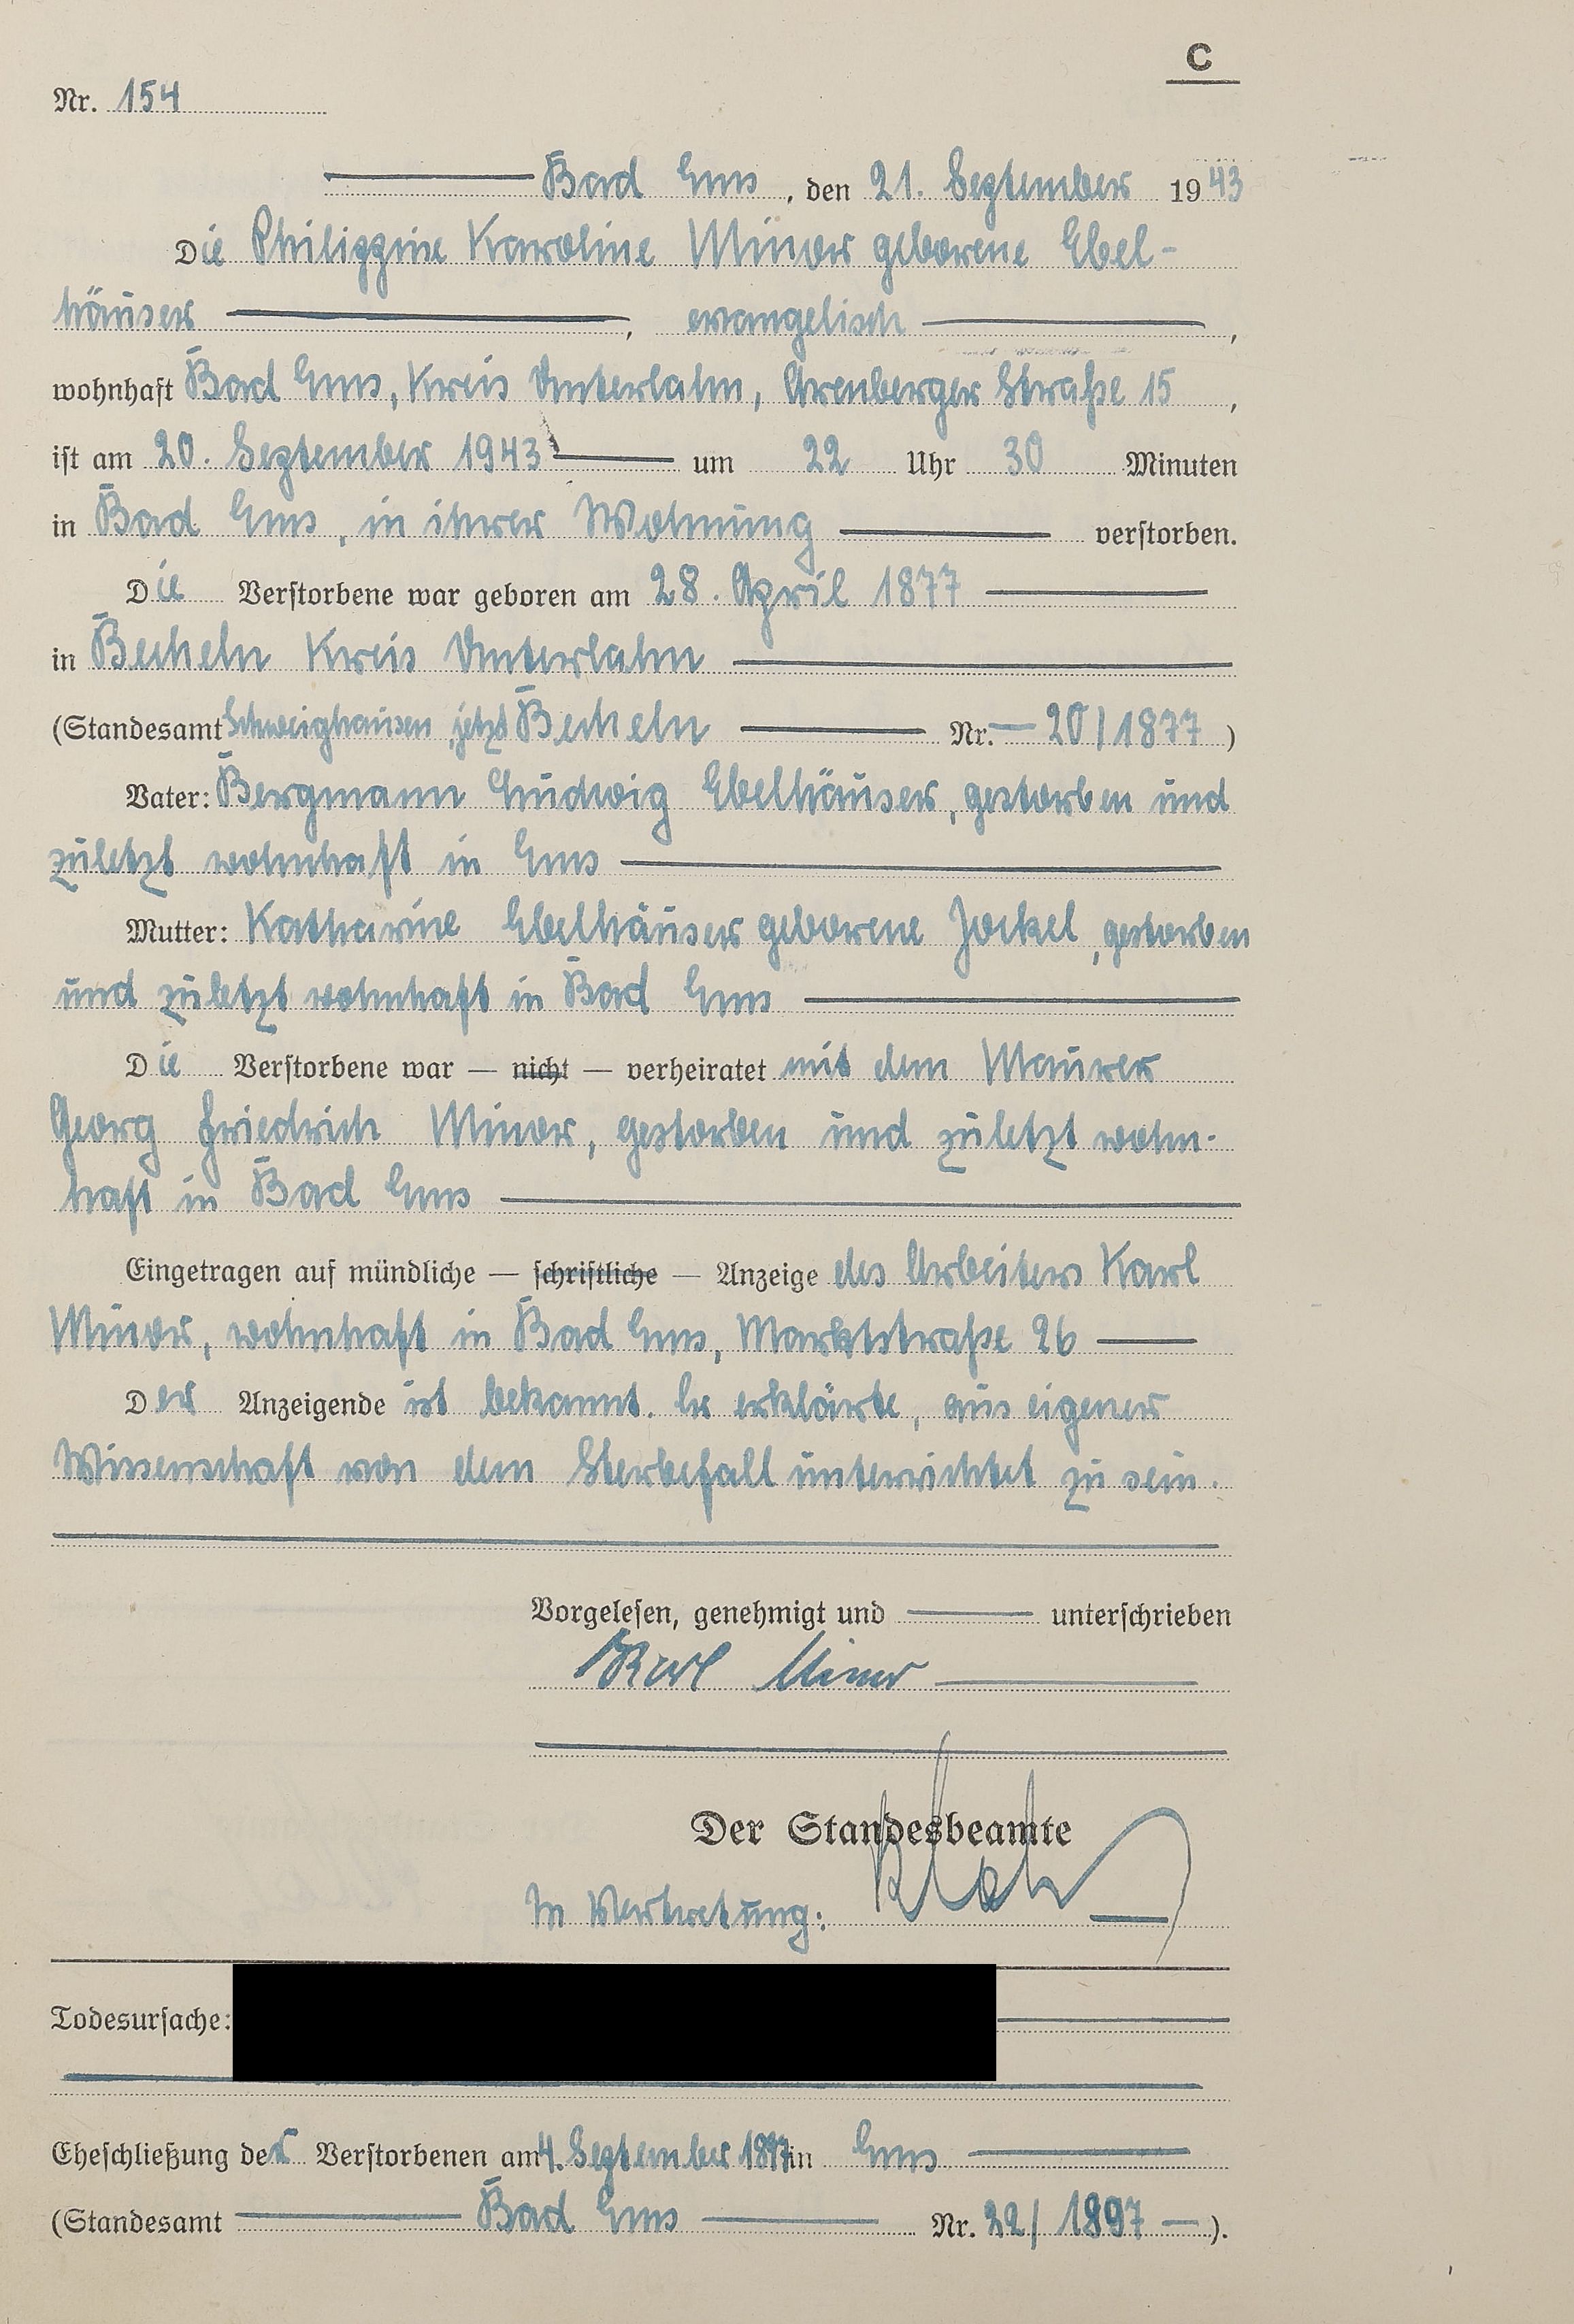 C
Nr. 154
Bad Ems, den 21. September 1943
Die Philippine Karoline Minor geborene Ebel-
häuser, evangelisch,
wohnhaft Bad Ems, Kreis Unterlahn, Arenberger Straße 15,
ist am 20. September 1943 um 22 Uhr 30 Minuten
in Bad Ems, in ihrer Wohnung verstorben.
Die Verstorbene war geboren am 28. April 1877
in Becheln Kreis Unterlahn
(Standesamt Schweighausen, jetzt Becheln Nr. — 20/1877)
Vater: Bergmann Ludwig Ebelhäuser, gestorben und
zuletzt wohnhaft in Ems
Mutter: Katharine Ebelhäuser geborene Jockel, gestorben
und zuletzt wohnhaft in Bad Ems
Die Verstorbene war — nicht — verheiratet mit dem Maurer
Georg Friedrich Minor, gestorben und zuletzt wohn-
haft in Bad Ems
Eingetragen auf mündliche — schriftliche — Anzeige des Arbeiters Karl
Minor, wohnhaft in Bad Ems, Marktstraße 26
Der Anzeigende ist bekannt. Er erklärte, aus eigener
Wissenschaft von dem Sterbefall unterrichtet zu sein.
Vorgelesen, genehmigt und unterschrieben
Karl Minor
Der Standesbeamte
In Vertretung:
Todesursache:
Eheschließung der Verstorbenen am 4. September 1897 in Ems
(Standesamt Bad Ems Nr. 22/1897 —).